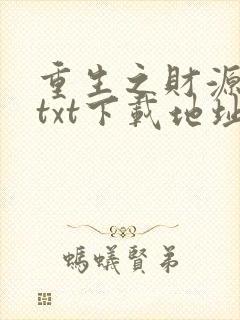 重生之財源
txt下載地址
螞蟻賢弟